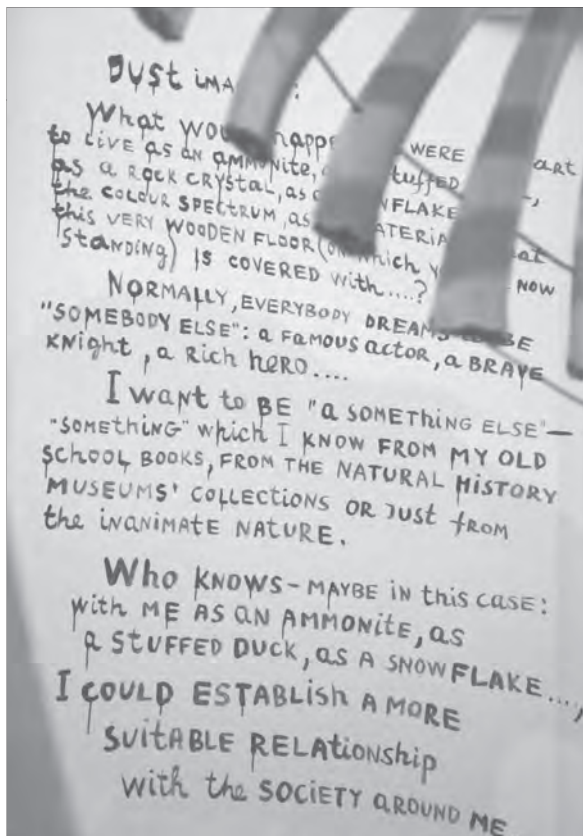 JUSt
What WERE
to LIVE AS AN AMMONITE, stuffed
as a ROCK CRYSTAL, as
the COLOUR SPECTRUM, as
this VERY WOODEN FLOOR (on which NOW
standing) IS COVERED with....?
NORMALLY, EVERYBODY DREAMS to BE
"SOMEBODY ELSE": a FAMOUS actor, a BRAVE
KNight, a Rich heRO....
I want to BE "a SOMETHING ELSE"—
"SOMEthiNG" which I KNOW FROM MY OLD
SCHOOL BOOKS, FROM THE NATURAL HISTORY
MUSEUMS' COLLECTIONS OR JUST from
the INANIMATE NATURE.
Who KNOWS - MAYBE IN this CASE:
with ME AS AN AMMONITE, as
a STUFFED DUCK, as A SNOWFLAKE...,
I COULD ESTABLISH A MORE
SUITABLE RELATIONSHIP
with the SOCIETY AROUND ME